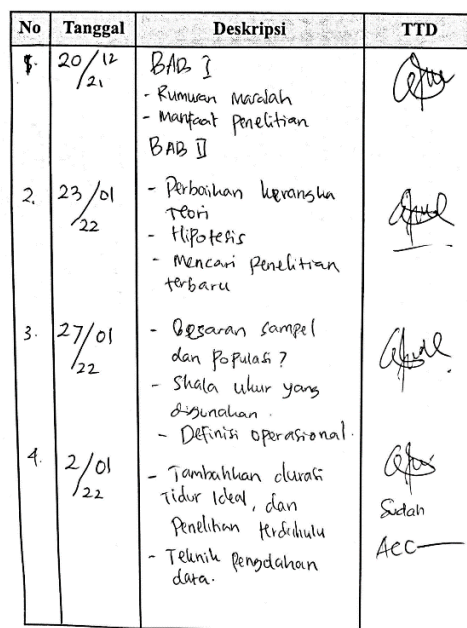 No Tanggal Deskripsi TTD
1. 20/12/21 BAB I
- Rumusan Masalah
- Manfaat Penelitian
BAB II
2. 23/01/22 - Perbaikan kerangka
Teori
- Hipotesis
- Mencari Penelitian
terbaru
3. 27/01/22 - Besaran sampel
dan Populasi?
- Skala ukur yang
digunakan.
- Definisi operasional.
4. 2/01/22 - Tambahkan durasi
Tidur Ideal, dan
Penelitian terdahulu
Sudah
- Teknik Pengolahan
data.
ACC